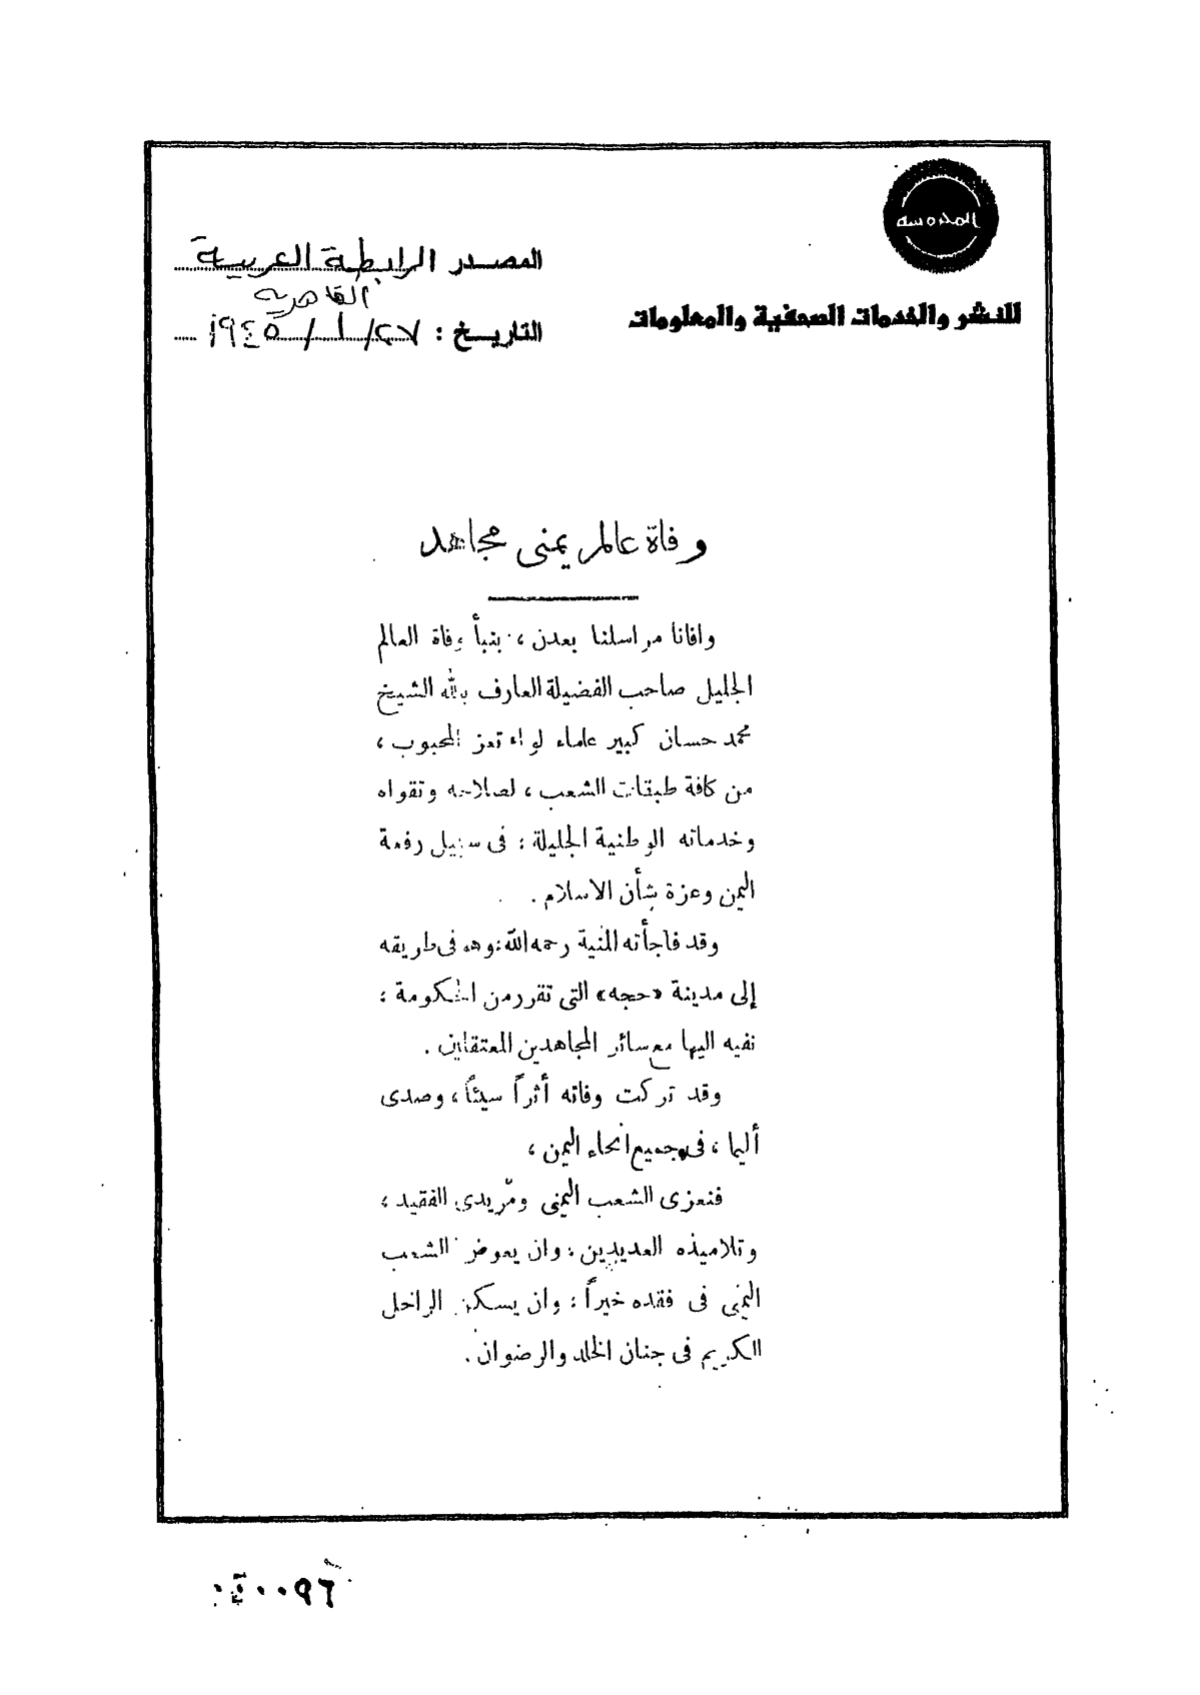 المحروسة
للنشر والخدمات الصحفية والمعلومات
المصدر الرابطة العربية
القاهرية
التاريخ : ٢٧/١/١٩٤٥
وفاة عالم يمنى مجاهد
وافانا مراسلنا بعدن ، بنبأ وفاة العالم
الجليل صاحب الفضيلة العارف بالله الشيخ
محمد حسان كبير علماء لواء تعز المحبوب ،
من كافة طبقات الشعب ، لصلاحه وتقواه
وخدماته الوطنية الجليلة ؛ فى سبيل رفعة
اليمن وعزة شأن الاسلام .
وقد فاجأته المنية رحمه الله ؛ وهو فى طريقه
إلى مدينة «حجه» التى تقرر من الحكومة ؛
نفيه اليها مع سائر المجاهدين المعتقلين .
وقد تركت وفاته أثراً سيئاً ، وصدى
أليما ، فى جميع انحاء اليمن ،
فنعزى الشعب اليمنى ومريدى الفقيد ؛
وتلاميذه العديدين ؛ وان يعوض الشعب
اليمنى فى فقده خيراً ؛ وان يسكن الراحل
الكريم فى جنان الخلد والرضوان .